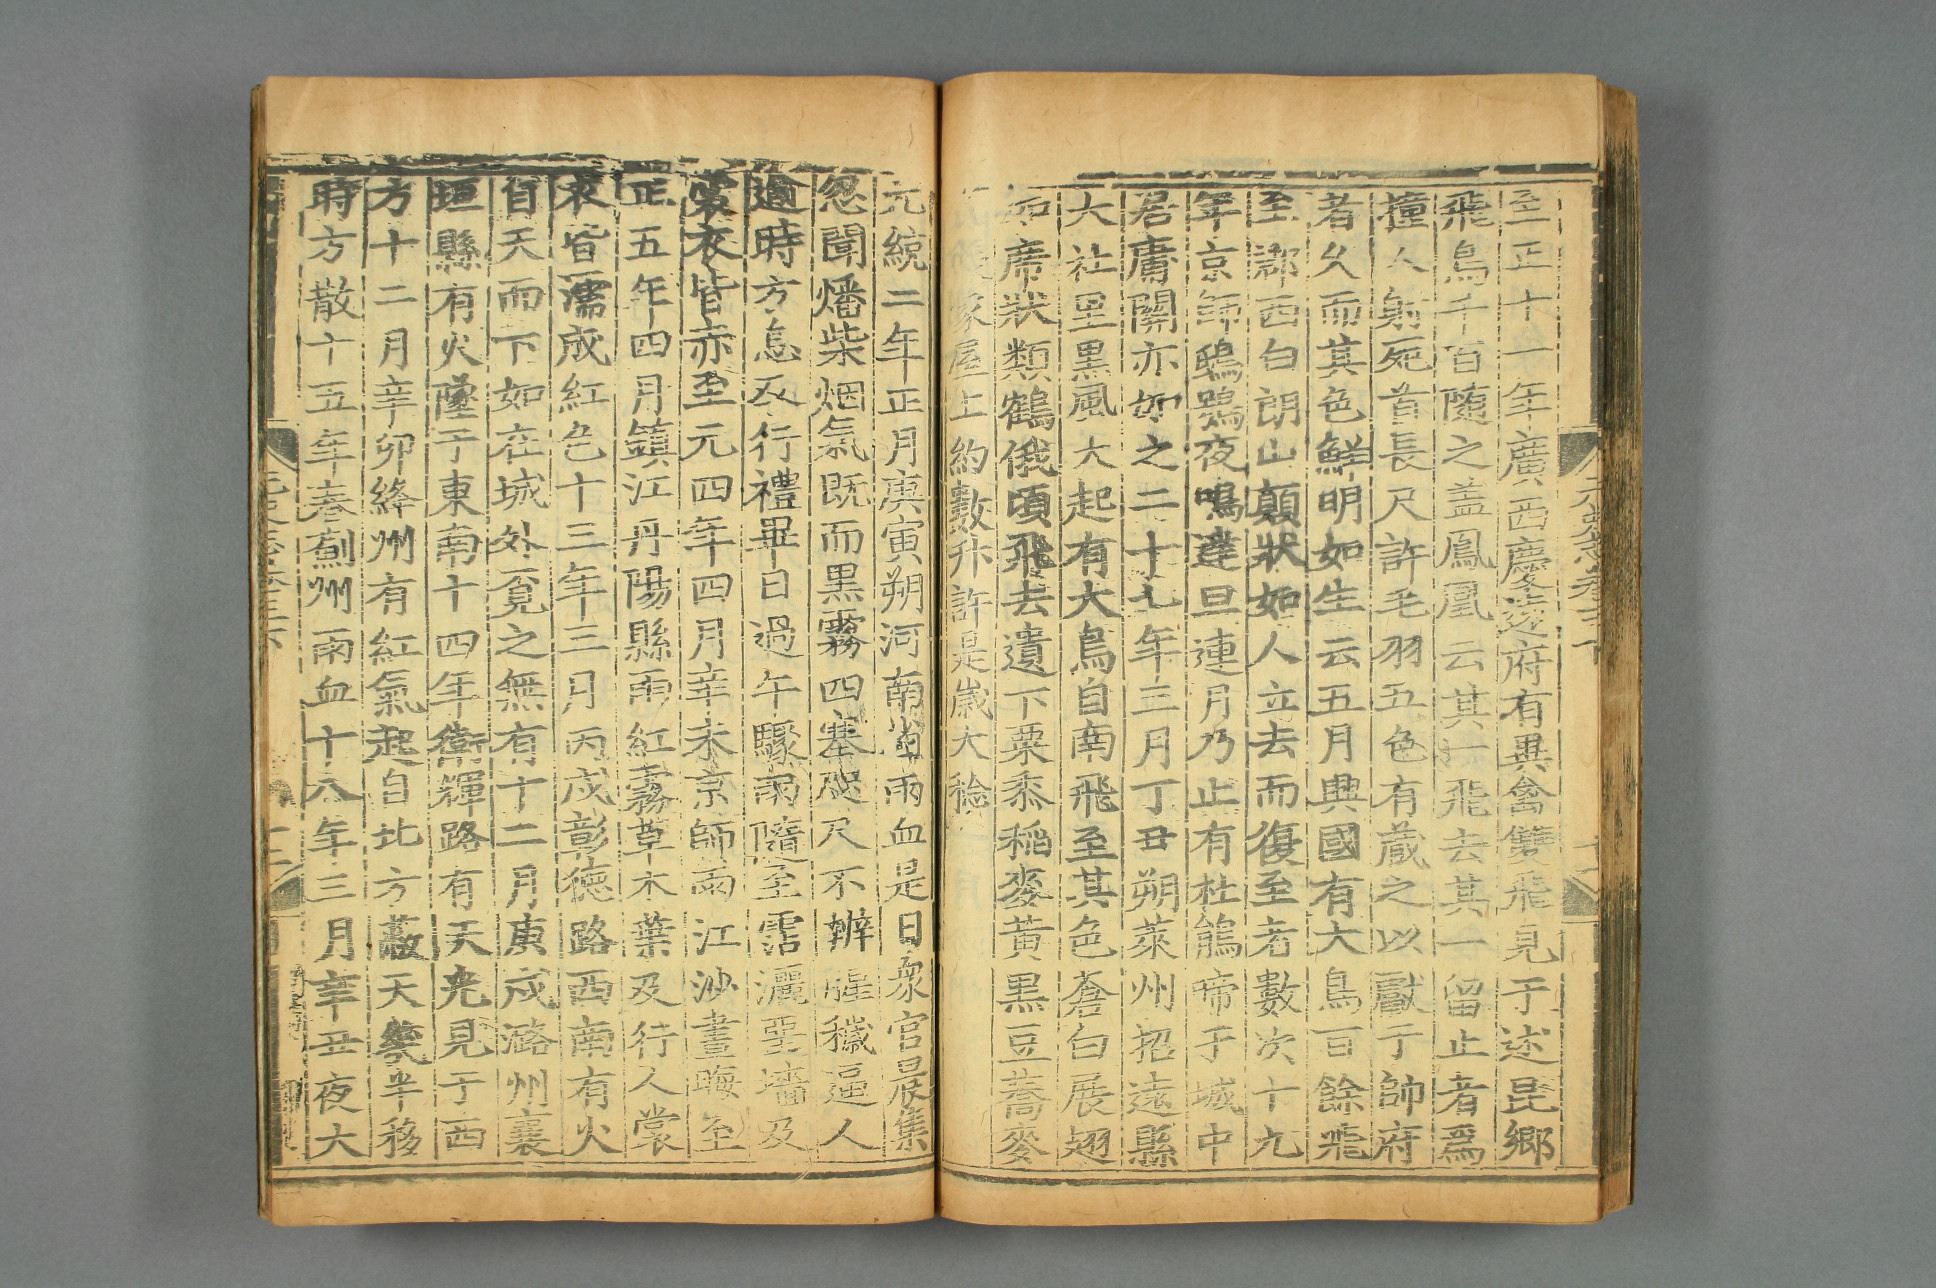 至正十一年廣西慶遠府有異禽雙飛見于述昆鄉
飛鳥千百隨之蓋鳳凰云其一飛去其一留止者爲
獞人射死首長尺許毛羽五色有藏之以獻于帥府
者久而其色鮮明如生云五月興國有大鳥百餘飛
至郡西白朗山顛狀如人立去而復至者數次十九
年京師鴟鴞夜鳴達旦連月乃止有杜鵑啼于城中
居庸關亦如之二十七年三月丁丑朔萊州招遠縣
大社里黑風大起有大鳥自南飛至其色蒼白展翅
如席狀類鶴俄頃飛去遺下粟黍稻麥黃黑豆蕎麥
家屋上約數升許是歲大稔
元統二年正月庚寅朔河南省雨血是日衆官晨集
忽聞燔柴烟氣既而黑霧四塞咫尺不辨腥穢逼人
逾時方息及行禮畢日過午驟雨隨至霑灑堊墻及
裳衣皆赤至元四年四月辛未京師雨江沙晝晦至
正五年四月鎮江丹陽縣雨紅霧草木葉及行人裳
衣皆濡成紅色十三年三月丙戌彰德路西南有火
自天而下如在城外覓之無有十二月庚戌潞州襄
垣縣有火墜于東南十四年衛輝路有天光見于西
方十二月辛卯絳州有紅氣起自北方蔽天幾半移
時方散十五年春薊州雨血十八年三月辛丑夜大